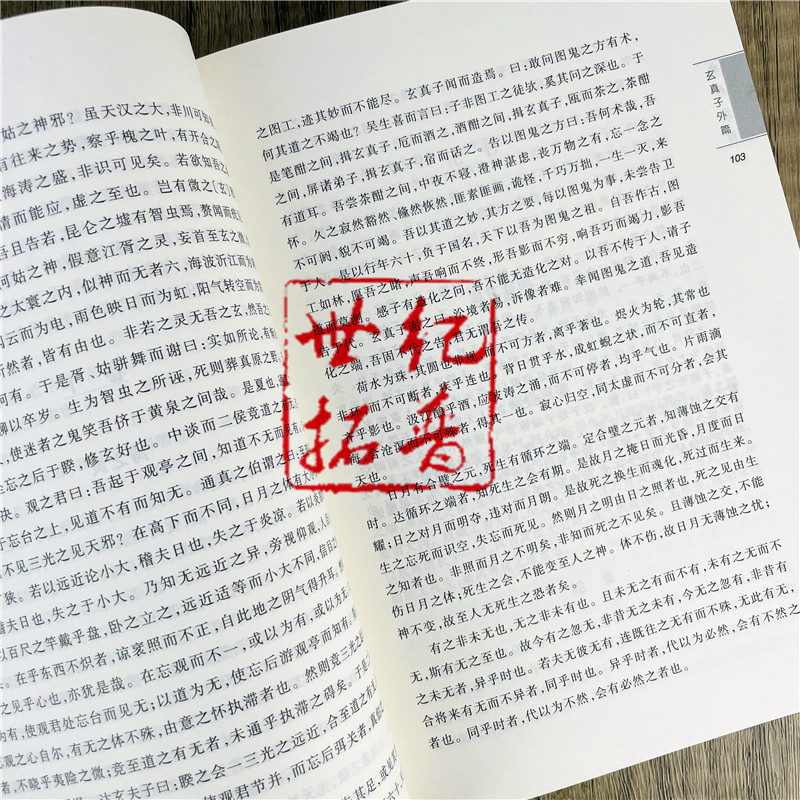 姑之神邪？虽天汉之大，非川可
有往来之势，察乎槐之叶，有开合之
海涛之盛，非识可见矣。若欲知吾之
清而能应，虚之至也。岂有微之〔玄〕
且告若，昆仑之墟有智虫焉，赘闻而夜
河姑之神，假意江胥之灵，妄首至玄之
之太寰之内，似神而无者六，海波沂江而
雨色映日而为虹，阳气转空而
云而为电，非若之灵无吾之玄，然
所然者，皆有由也。于是胥、姑骈舞而谢曰：实如所论，
何有。生为智虫之所诬，死则葬真原之野
聊以卒岁。使迷者之鬼笑吾侪于黄泉之间哉。是夏也，
忘之后于睽，修玄好也。中谈而二侯竞道之
决。观之君曰：吾起于观亭之下，知道不无而见
于忘台之上，见道不有而知无。通真之伯谓之曰：
不见三光之见天邪？在高下而不同，日月之体
狭。若以远近论小大，稽夫日也，失之于炎凉。若以
稽夫日也，失之于小大。乃知无远近之异，旁视仰观，人
以百尺之竿戴乎盘，卧之立之，远近适等而小大不同，信目
在乎东西不炽者，谅衮照而不正，自此地之阴气得升耳。
之见乎心也，亦犹是哉。在忘观而不一，或以为有，或以为无，
为有，使观君处忘台而见无；以道为无，使忘后游观亭而知有，
观之心自尔，有无之体不殊，由意之怀执滞者也。然则竞三光之
者，不晓乎夷险之微；竞至道之有无者，未通乎执滞之得矣。于是
达玄夫子曰：睽之会一三光之远近，合至道之有
使观君节并，而忘后弭关者，真
103
玄真子外篇
之图工，迹其妙而不能尽。玄真子闻而造焉。曰：敢问图鬼之方有术，
何其道之不竭也？吴生喜而言曰：子非图工之徒欤，奚其问之深也。于
是笔酣之间，揖玄真子，卮而酒之，酒酣之间，揖玄真子，瓯而茶之，茶酣
之间，屏诸弟子，揖玄真子，宿而话之。告以图鬼之方曰：吾何术哉，吾
有道耳。吾尝茶酣之间，中夜不寝，澄神湛虑，丧万物之有，忘一念之
怀。久之寂然豁然，倏然恢然，匪素匪画，诡怪，千巧万拙，一生一灭，来
不可阏，貌不可竭。吾以其道之妙，其方之要，每以图鬼为事，未尝告卫
于人。是以行年六十，负于国名，天下以吾为图鬼之祖。自吾作古，图
工如林，愿吾之睹，声吾响而不终，形吾影而不穷，响吾巧而竭力，影吾
道而莫测。感子有造化之问，吾不能无造化之对。以吾不传于人，请子
于代。玄真子谢之曰：沁境者易，泝像者难。幸闻图鬼之道，吾见造
化之端，吾固不代之告，君无谓吾之传。
荷水为珠，其圆也非规，而不可方者，离乎著也。烬火为轮，其常也
非环，而不可断者，疾乎连也。背日贯乎水，成虹蜺之状，而不可直者，
者乎影也。汲江醳乎酒，应波涛之涌，而不可停者，均乎气也。片雨滴
海，若沧溟而不可殊者，得其一也。寂心归空，同太虚而不可分者，会其
天也。
日月有合璧之元，死生有循环之端。定合璧之元者，知薄蚀之交有
时。达循环之端者，知死生之会有期。是故月之掩日而光昏，月度而日
耀；日之对月而明夺，违对而月朗。是故死之换生而魂化，死过而生来。
生之忘死而识空，失忘而死见。然则月之明由日之照者也，死之见由生
之知者也。非照而月之不明矣，非知而死之不见矣。且薄蚀之交，不能
伤日月之体；死生之会，不能变至人之神。体不伤，故日月无薄蚀之忧；
神不变，故至人无死生之恐者矣。
有之非未无也，无之非未有也。且未无之有而不有，未有之无而不
无，斯有无之至也。故今有之忽无，非昔无之未有，今无之忽有，非昔有
之未无者，异乎时也。若夫无彼无有，连既往之无有而不殊，无此有无，
合将来有无而不异者，同乎时也。异乎时者，代以为必然，会有不然之
者也。同乎时者，代以为不然，会有必然之者也。
世纪
拓普